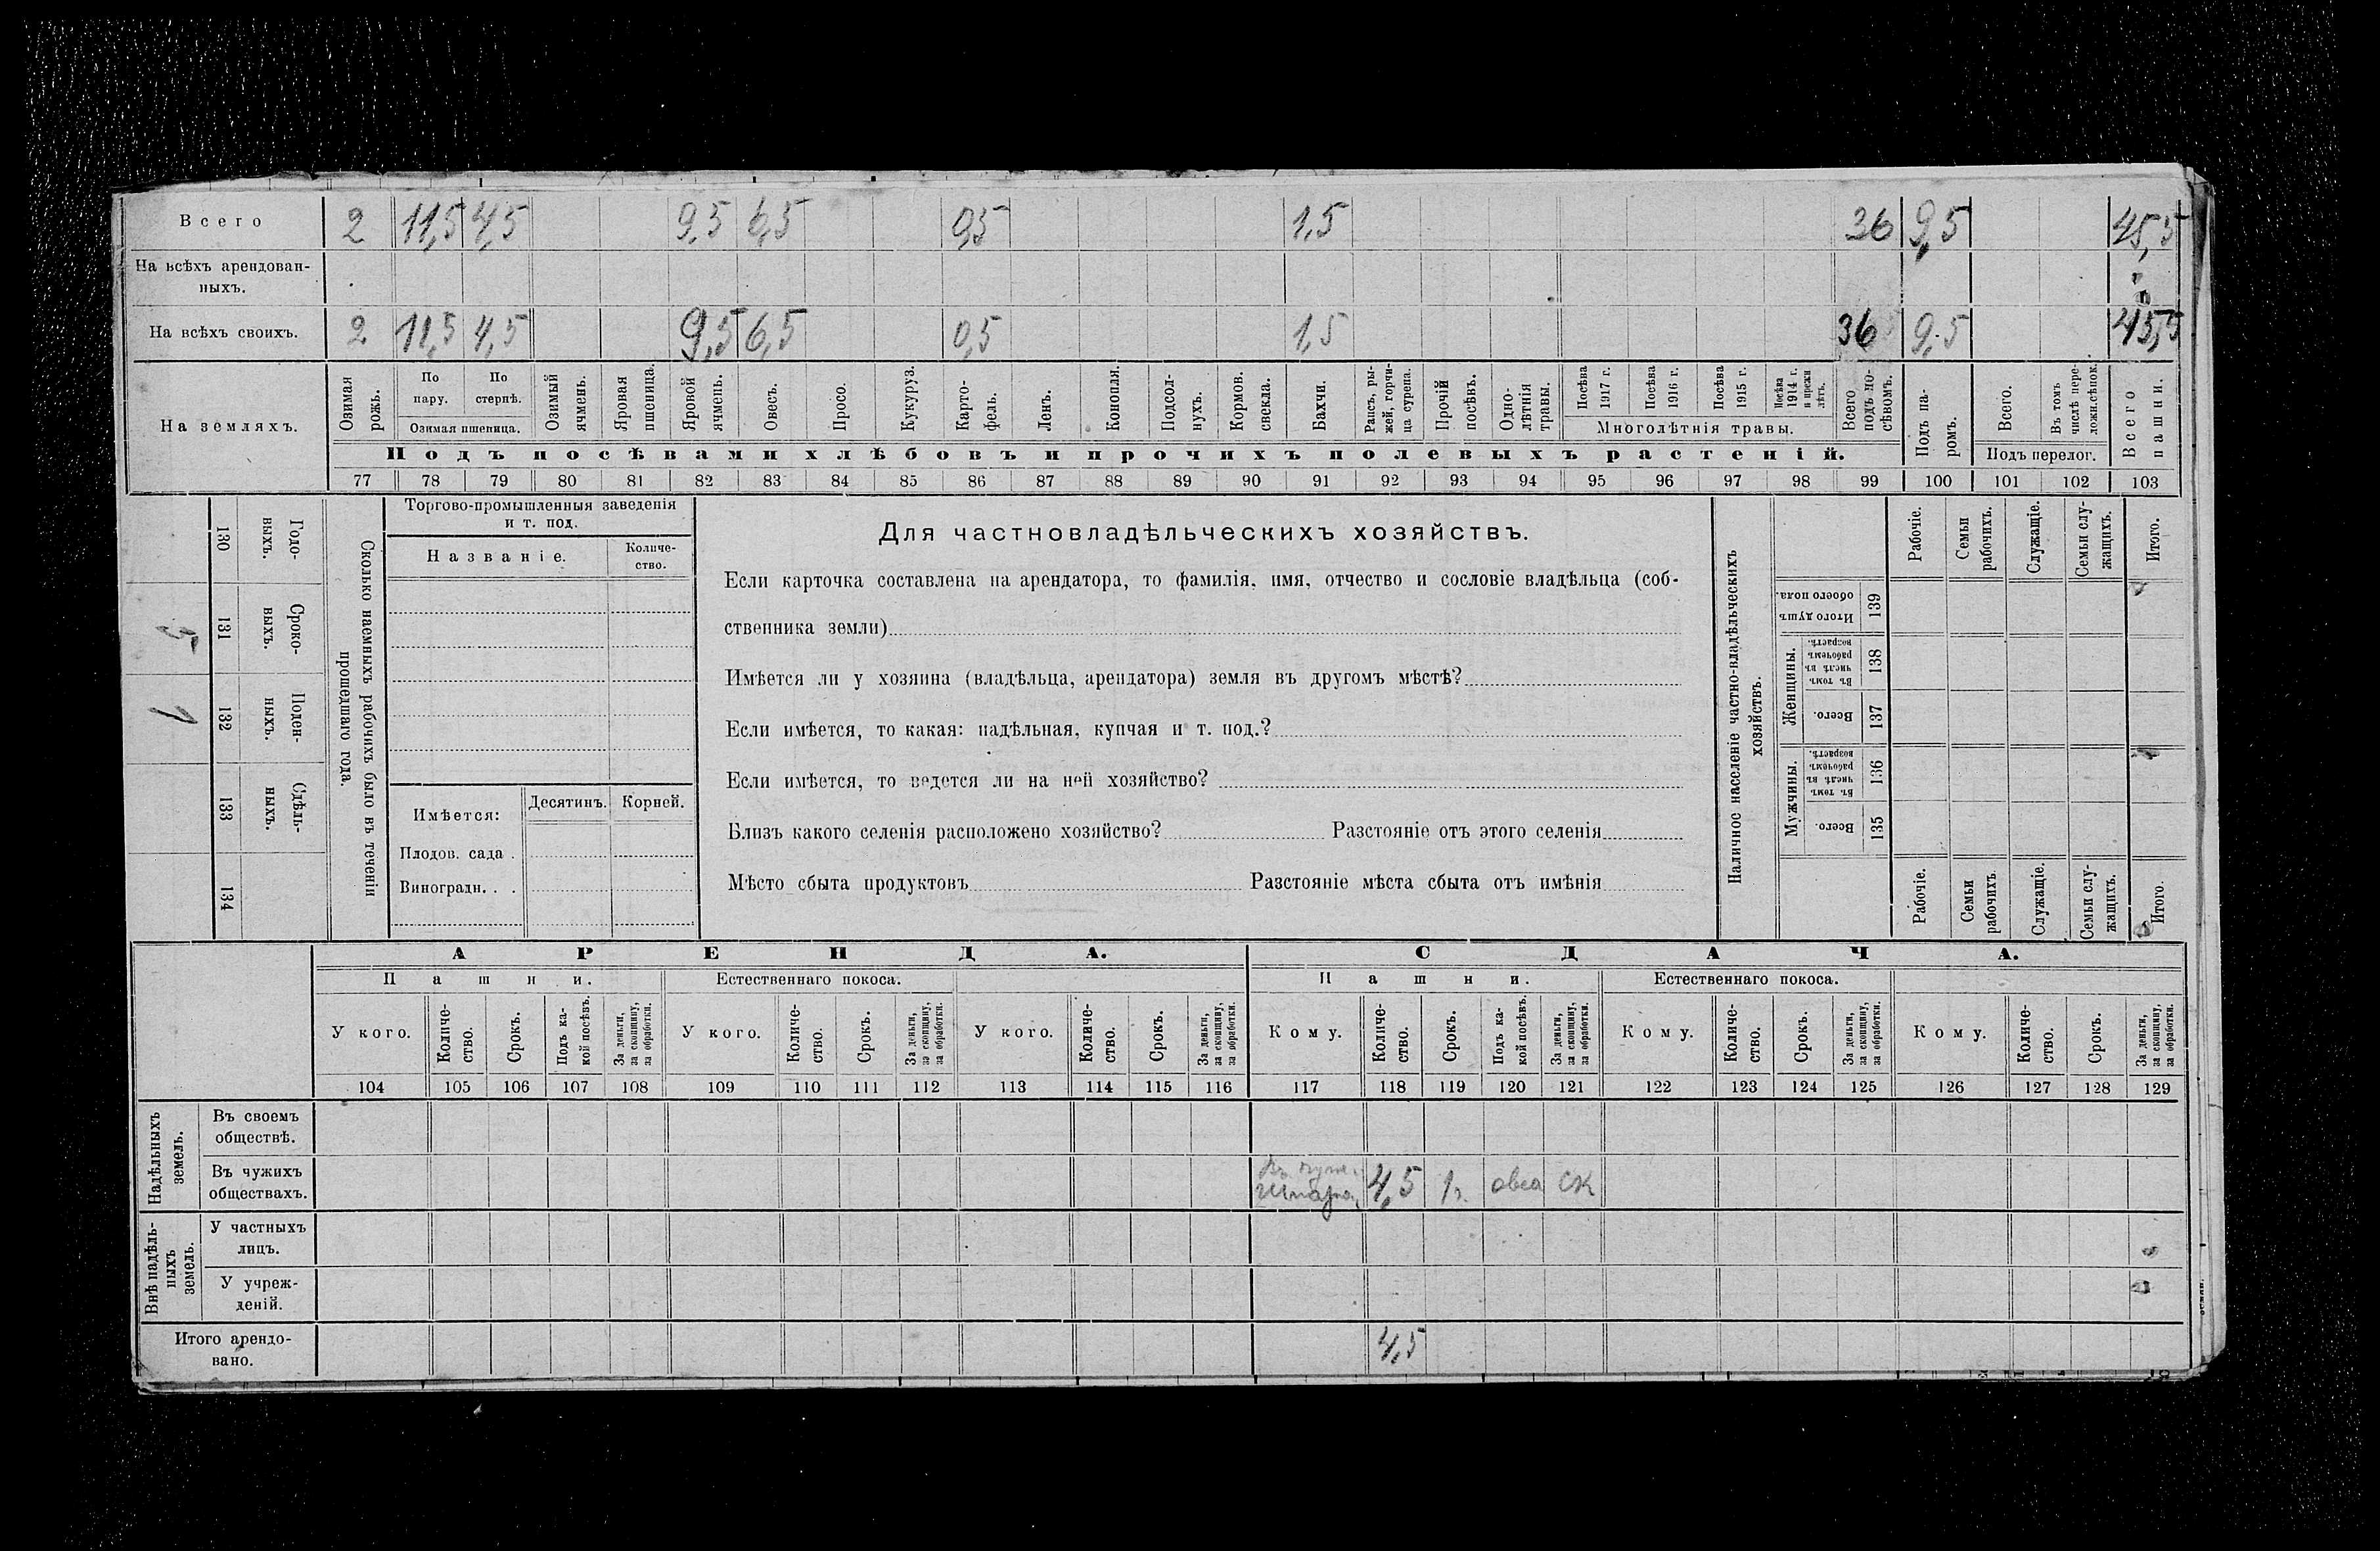 Всего 2 11,5 4,5 9,5 6,5 0,5 1,5 36 9,5 45,5
На всѣхъ арендован-
ныхъ.
На всѣхъ своихъ. 2 11,5 4,5 9,5 6,5 0,5 1,5 36 9,5 45,5
На земляхъ.
Озимая рожь.
По пару.
По стернѣ.
Озимая пшеница.
Озимый ячмень.
Яровая пшеница.
Яровой ячмень.
Овесъ.
Просо.
Кукуруз.
Карто-
фель.
Ленъ.
Конопля.
Подсол-
нухъ.
Кормов.
свекла.
Бахчи.
Рапсъ, ры-
жей, горчи-
ца сурепа.
Прочій
посѣвъ.
Одно-
лѣтнія
травы.
Посѣва 1917 г.
Посѣва 1916 г.
Посѣва 1915 г.
Посѣва 1914 г. и прежн лѣтъ.
Многолѣтнія травы.
Всего
подъ по-
сѣвомъ.
Подъ па-
ромъ.
Всего.
Въ томъ
числѣ пере-
ложн.сѣнок.
Подъ перелог.
Всего
пашни.
Подъ посѣвами хлѣбовъ и прочихъ полевыхъ растеній.
77 78 79 80 81 82 83 84 85 86 87 88 89 90 91 92 93 94 95 96 97 98 99 100 101 102 103
Сколько наемныхъ рабочихъ было въ теченіи
прошедшаго года.
Годо-
выхъ.
130
Сроко-
выхъ.
131
5
Поден-
ныхъ.
132
1
Сдѣль-
ныхъ.
133
134
Торгово-промышленныя заведенія
и т. под.
Названіе.
Количе-
ство.
Имѣется: Десятинъ. Корней.
Плодов. сада .
Виноградн. . .
Для частновладѣльческихъ хозяйствъ.
Если карточка составлена на арендатора, то фамилія, имя, отчество и сословіе владѣльца (соб-
ственника земли)
Имѣется ли у хозяина (владѣльца, арендатора) земля въ другомъ мѣстѣ?
Если имѣется, то какая: надѣльная, купчая и т. под.?
Если имѣется, то ведется ли на ней хозяйство?
Близъ какого селенія расположено хозяйство? Разстояніе отъ этого селенія
Мѣсто сбыта продуктовъ Разстояніе мѣста сбыта отъ имѣнія
Наличное населеніе частно-владѣльческихъ
хозяйствъ.
Рабочіе.
Семьи
рабочихъ.
Служащіе.
Семьи слу-
жащихъ.
Итого.
Итого душъ
обоего пола.
139
Женщины.
Въ томъ
числѣ въ
рабочемъ
возрастѣ.
138
Всего.
137
Мужчины.
Въ томъ
числѣ въ
рабочемъ
возрастѣ.
136
Всего.
135
Рабочіе.
Семьи
рабочихъ
Служащіе.
Семьи слу-
жащихъ.
Итого.
АРЕНДА. СДАЧА.
Пашни. Естественнаго покоса. Пашни. Естественнаго покоса.
У кого.
Количе-
ство.
Срокъ.
Подъ ка-
кой посѣвъ.
За деньги,
за скопщину,
за обработки.
У кого.
Количе-
ство.
Срокъ.
За деньги,
за скопщину,
за обработки.
У кого.
Количе-
ство.
Срокъ.
За деньги,
за скопщину,
за обработки.
Кому.
Количе-
ство.
Срокъ.
Подъ ка-
кой посѣвъ.
За деньги,
за скопщину,
за обработки.
Кому.
Количе-
ство.
Срокъ.
За деньги,
за скопщину,
за обработки.
Кому.
Количе-
ство.
Срокъ.
За деньги,
за скопщину,
за обработки.
104 105 106 107 108 109 110 111 112 113 114 115 116 117 118 119 120 121 122 123 124 125 126 127 128 129
Надѣльныхъ
земель.
Въ своемъ
обществѣ.
Въ чужихъ
обществахъ.
4,5 1г. овса ск
Внѣ надѣль-
ныхъ
земель.
У частныхъ
лицъ.
У учреж-
деній.
Итого арендо-
вано.
4,5